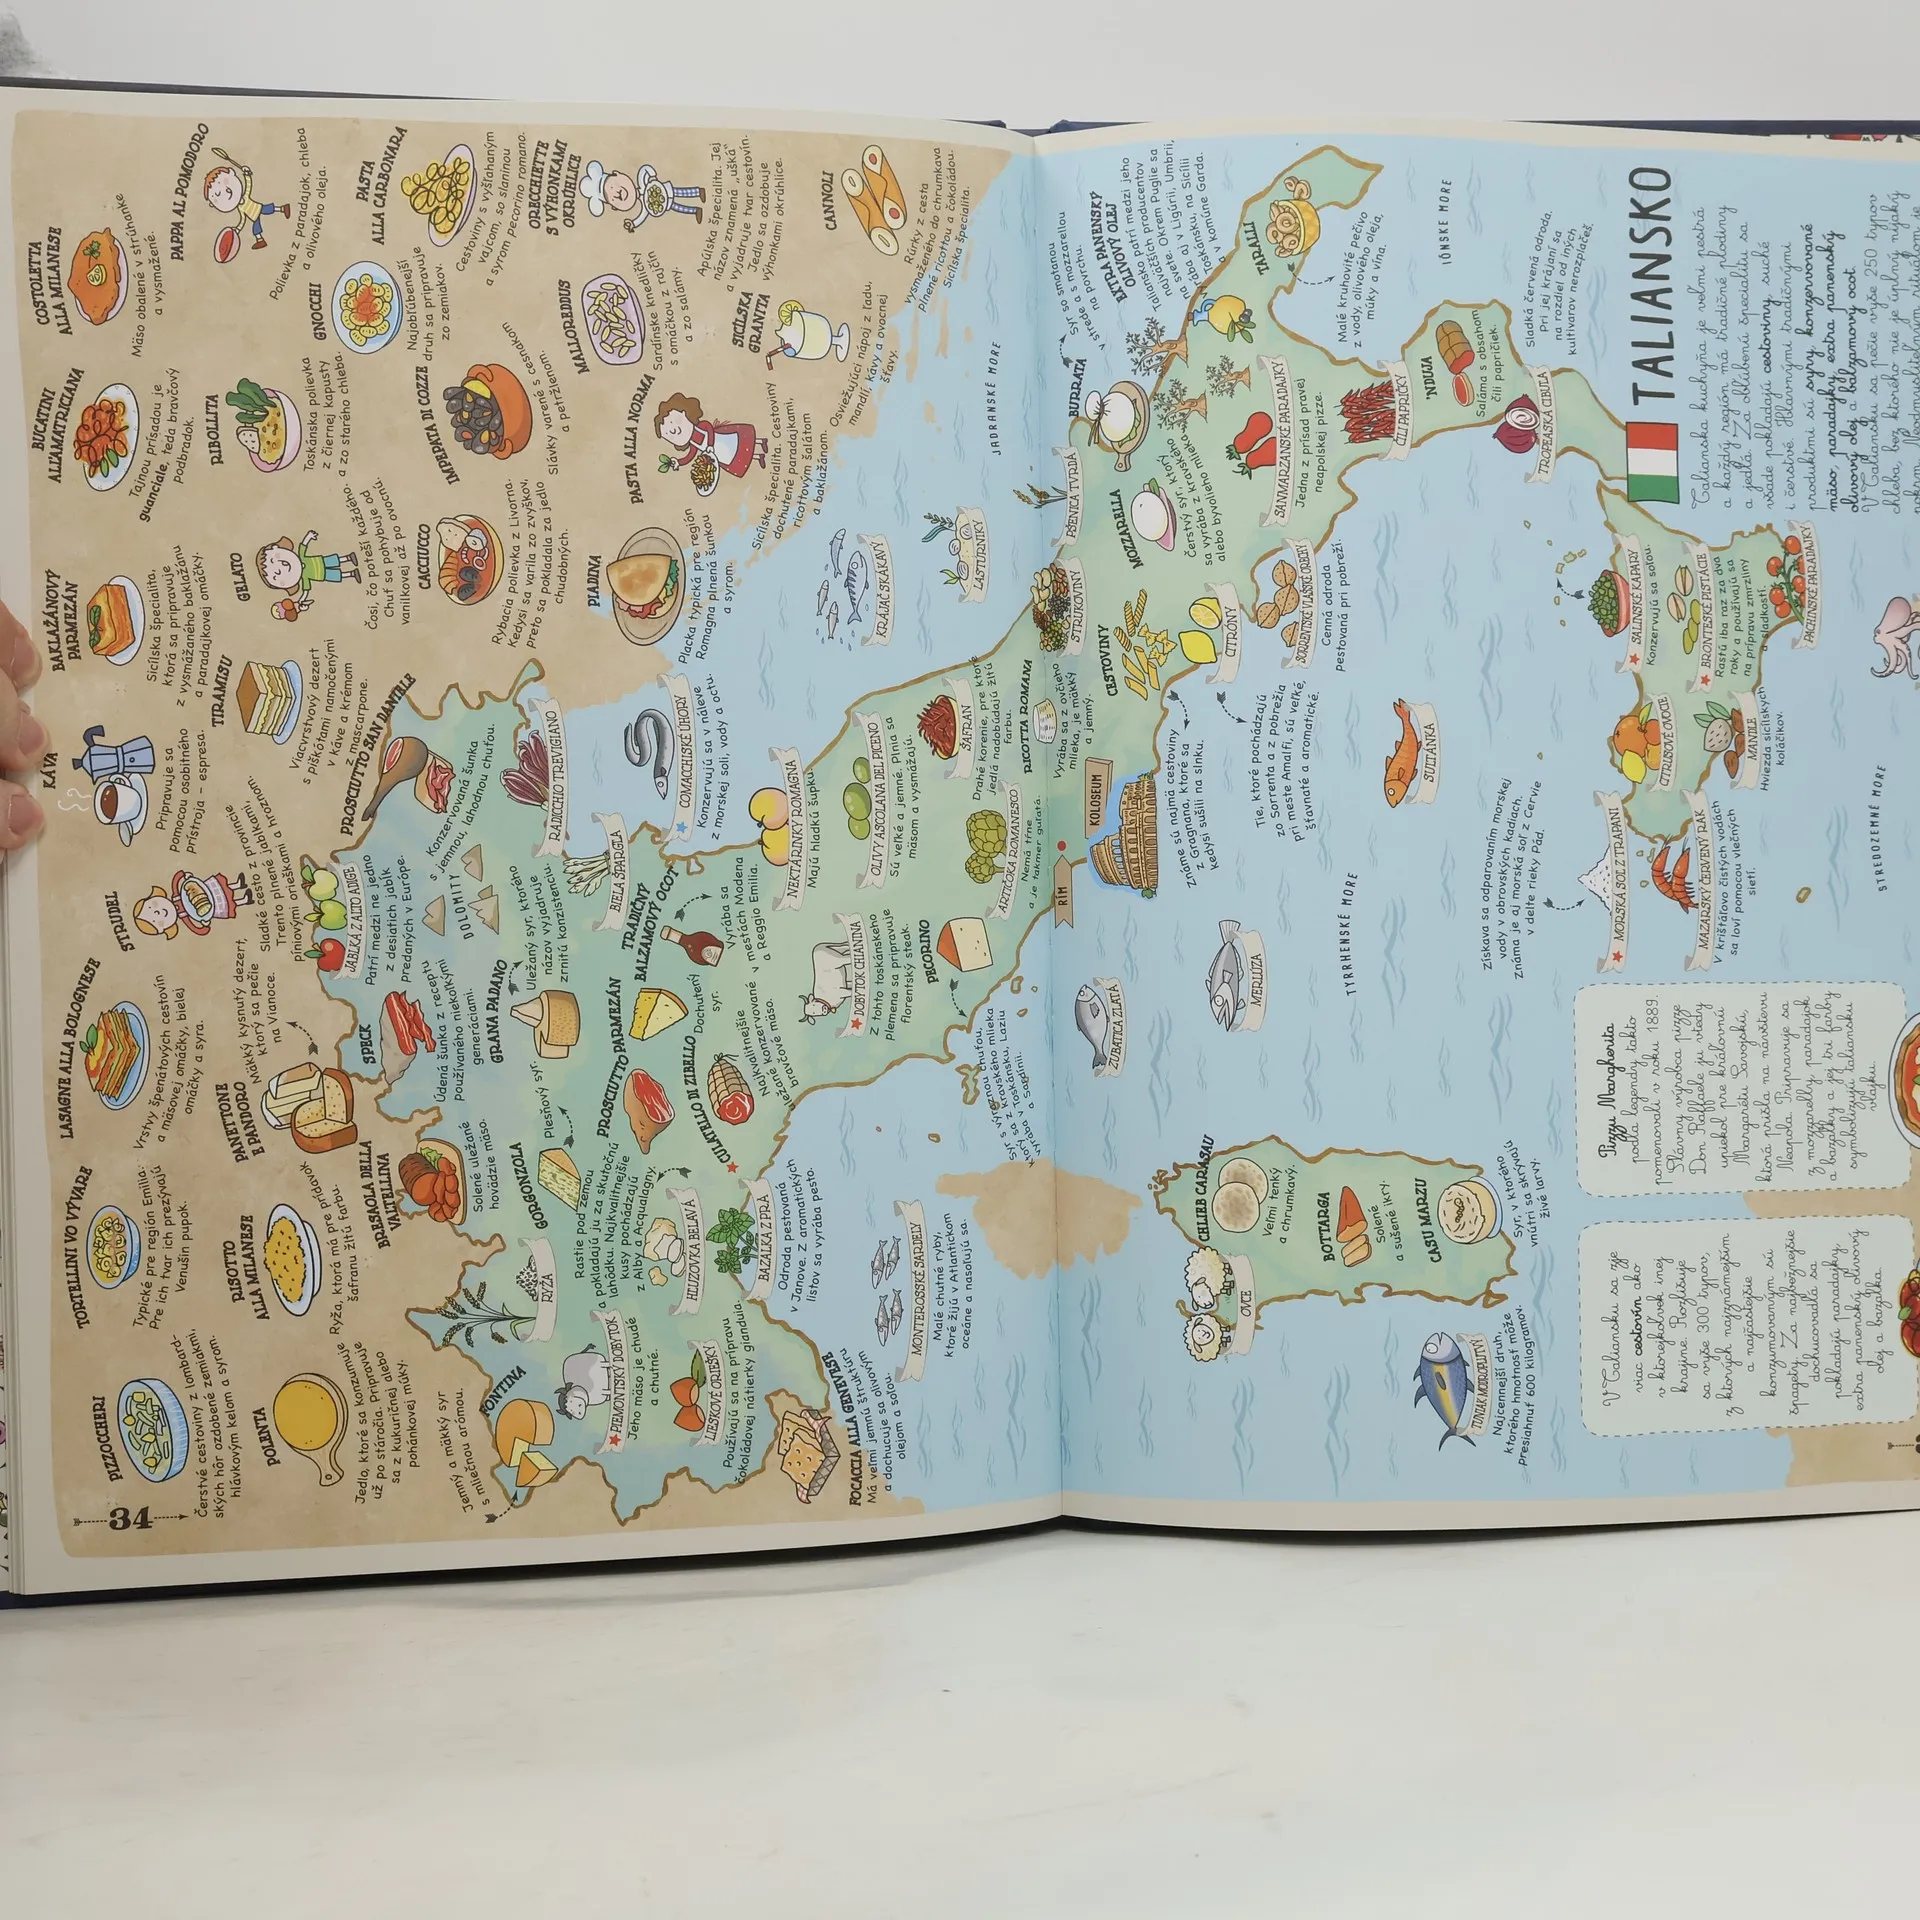 34
PIZZOCCHERI
Čerstvé cestoviny z lombard-
ských hôr ozdobené zemiakmi,
hlávkovým kelom a syrom.
TORTELLINI VO VÝVARE
Typické pre región Emilia.
Pre ich tvar ich prezývajú
Venušin pupok.
LASAGNE ALLA BOLOGNESE
Vrstvy špenátových cestovín
a mäsovej omáčky, bielej
omáčky a syra.
STRUDEL
Sladké cesto z provincie
Trento plnené jablkami,
píniovými orieškami a hroznom.
KÁVA
Pripravuje sa
pomocou osobitného
prístroja – espresa.
BAKLAŽÁNOVÝ
PARMEZÁN
Sicílska špecialita,
ktorá sa pripravuje
z vysmážaného baklažánu
a paradajkovej omáčky.
BUCATINI
ALLAMATRICIANA
Tajnou prísadou je
guanciale, teda bravčový
podbradok.
COSTOLETTA
ALLA MILANESE
Mäso obalené v strúhanke
a vysmážené.
POLENTA
Jedlo, ktoré sa konzumuje
už po stáročia. Pripravuje
sa z kukuričnej alebo
pohánkovej múky.
RISOTTO
ALLA MILANESE
Ryža, ktorá má pre prídavok
šafranu žltú farbu.
PANETTONE
E PANDORO
Mäkký kysnutý dezert,
ktorý sa pečie
na Vianoce.
TIRAMISU
Viacvrstvový dezert
s piškótami namočenými
v káve a krémom
z mascarpone.
GELATO
Čosi, čo poteší každého.
Chuť sa pohybuje od
vanilkovej až po ovocnú.
RIBOLLITA
Toskánska polievka
z čiernej kapusty
a zo starého chleba.
GNOCCHI
Najobľúbenejší
druh sa pripravuje
zo zemiakov.
PAPPA AL POMODORO
Polievka z paradajok, chleba
a olivového oleja.
PASTA
ALLA CARBONARA
Cestoviny s vyšľahaným
vajcom, so slaninou
a syrom pecorino romano.
CACCIUCCO
Rybacia polievka z Livorna.
Kedysi sa varila zo zvyškov,
preto sa pokladala za jedlo
chudobných.
IMPEPATA DI COZZE
Slávky varené s cesnakom
a petržlenom.
MALLOREDDUS
Sardínske knedličky
s omáčkou z rajčín
a zo salámy.
ORECCHIETTE
S VÝHONKAMI
OKRÚHLICE
Apúlska špecialita. Jej
názov znamená „uška“
a vyjadruje tvar cestovín.
Jedlo sa ozdobuje
výhonkami okrúhlice.
PIADINA
Placka typická pre región
Romagna plnená šunkou
a syrom.
PASTA ALLA NORMA
Sicílska špecialita. Cestoviny
dochutené paradajkami,
ricottovým šalátom
a baklažánom.
SICÍLSKA
GRANITA
Osviežujúci nápoj z ľadu,
mandlí, kávy a ovocnej
šťavy.
CANNOLI
Rúrky z cesta
vysmaženého do chrumkava
plnené ricottou a čokoládou.
Sicílska špecialita.
FONTINA
Jemný a mäkký syr
s mliečnou arómou.
BRESAOLA DELLA
VALTELLINA
Solené uležané
hovädzie mäso.
SPECK
Údená šunka z receptu
používaného niekoľkými
generáciami.
JABLKÁ Z ALTO ADIGE
Patrí medzi ne jedno
z desiatich jabĺk
predaných v Európe.
PROSCIUTTO SAN DANIELE
Konzervovaná šunka
s jemnou, lahodnou chuťou.
DOLOMITY
RADICCHIO TREVIGIANO
BIELA ŠPARGĽA
RYŽA
GORGONZOLA
Plesňový syr.
GRANA PADANO
Uležaný syr, ktorého
názov vyjadruje
zrnitú konzistenciu.
PIEMONTSKÝ DOBYTOK
Jeho mäso je chudé
a chutné.
HĽUZOVKA BELAVÁ
Rastie pod zemou
a pokladajú ju za skutočnú
lahôdku. Najkvalitnejšie
kusy pochádzajú
z Alby a Acqualagny.
PROSCIUTTO
PARMEZÁN
Dochutený
syr.
TRADIČNÝ
BALZAMOVÝ OCOT
Vyrába sa
v mestách Modena
a Reggio Emilia.
CULATELLO DI ZIBELLO
Najkvalitnejšie
konzervované
uležané konzerv. mäso.
LIESKOVÉ ORIEŠKY
Používajú sa na prípravu
čokoládovej nátierky gianduia.
BAZALKA Z PRÀ
Odroda pestovaná
v Janove. Z aromatických
listov sa vyrába pesto.
FOCACCIA ALLA GENOVESE
Má veľmi jemnú štruktúru
a dochucuje sa olivovým
olejom a soľou.
MONTEROSSKÉ SARDELY
Malé chutné ryby,
ktoré žijú v Atlantickom
oceáne a nasoľujú sa.
COMACCHSKÉ ÚHORY
Konzervujú sa v náleve
z morskej soli, vody a octu.
NEKTÁRINKY ROMAGNA
Majú hladkú šupku.
DOBYTOK CHIANINA
Z tohto toskánskeho
plemena sa pripravuje
florentský steak.
OLIVY ASCOLANA DEL PICENO
Sú veľké a jemné. Plnia sa
mäsom a vysmážajú.
PECORINO
Syr s výraznou chuťou,
ktorý sa z kravského mlieka
vyrába v Toskánsku, Laziu
a Sardínii.
ŠAFRAN
Drahé korenie, pre ktoré
jedlá nadobúdajú žltú
farbu.
ARTIČOKA ROMANESCO
Nemá tŕne
a je takmer guľatá.
RICOTTA ROMANA
Vyrába sa z ovčieho
mlieka, je mäkký
a jemný.
KRÁJAČ SKÁKAVÝ
LASTÚRNIKY
JADRANSKÉ MORE
RÍM
KOLOSEUM
STRUKOVINY
PŠENICA TVRDÁ
BURRATA
Syr so smotanou
v strede a s mozzarellou
na povrchu.
EXTRA PANENSKÝ
OLIVOVÝ OLEJ
Taliansko patrí medzi jeho
najväčších producentov
na svete. Okrem Puglie sa
vyrába aj v Ligúrii, Umbrii,
Toskánsku, na Sicílii
a v komúne Garda.
MOZZARELLA
Čerstvý syr, ktorý
sa vyrába z kravského
alebo byvolieho mlieka.
CESTOVINY
Známe sú najmä cestoviny
z Gragnana, ktoré sa
kedysi sušili na slnku.
CITRÓNY
Tie, ktoré pochádzajú
zo Sorrenta a z pobrežia
pri meste Amalfi, sú veľké,
šťavnaté a aromatické.
SANMARZANSKÉ PARADAJKY
Jedna z prísad pravej
neapolskej pizze.
SORRENTSKÉ VLAŠSKÉ ORECHY
Cenná odroda
pestovaná pri pobreží.
TARALLI
Malé kruhovité pečivo
z vody, olivového oleja,
múky a vína.
ČILI PAPRIČKY
'NDUJA
Saláma s obsahom
čili papričiek.
TROPEASKÁ CIBUĽA
Sladká červená odroda.
Pri jej krájaní sa
na rozdiel od iných
kultivarov nerozplačeš.
IÓNSKE MORE
ZUBATICA ZLATÁ
MERLÚZA
SULTÁNKA
TYRRHENSKÉ MORE
CHLIEB CARASAU
Veľmi tenký
a chrumkavý.
OVCE
BOTTARGA
Solené
a sušené ikry.
CASU MARZU
Syr, v ktorého
vnútri sa skrývajú
živé larvy.
TUNIAK MODROPLUTVÝ
Najcennejší druh,
ktorého hmotnosť môže
presiahnuť 600 kilogramov.
MORSKÁ SOĽ Z TRAPANI
Získava sa odparovaním morskej
vody v obrovských kadiach.
Známa je aj morská soľ z Cervie
v delte rieky Pád.
MAZARSKÝ ČERVENÝ RAK
V krištáľovo čistých vodách
sa loví pomocou vlečných
sietí.
CITRUSOVÉ OVOCIE
MANDLE
Hviezda sicílskych
koláčikov.
SALINSKÉ KAPARY
Konzervujú sa soľou.
BRONTESKÉ PISTÁCIE
Rastú iba raz za dva
roky a používajú sa
na prípravu zmrzliny
a sladkostí.
PACHINSKÉ PARADAJKY
STREDOZEMNÉ MORE
TALIANSKO
Talianska kuchyňa je veľmi pestrá
a každý región má tradičné plodiny
a jedlá. Za obľúbenú špecialitu sa
všade pokladajú cestoviny, suché
i čerstvé. Hlavnými tradičnými
produktmi sú syry, konzervované
mäso, paradajky, extra panenský
olivový olej a balzamový ocot.
V Taliansku sa pečie vyše 250 typov
chleba, bez ktorého nie je úplný nijaký
Pizzu Margherita
podľa legendy takto
pomenovali v roku 1889.
Slávny výrobca pizze
Don Raffaele ju vtedy
upiekol pre kráľovnú
Margarétu Savojskú,
ktorá prišla na návštevu
Neapola. Pripravuje sa
z mozzarelly, paradajok
a bazalky a jej tri farby
symbolizujú taliansku
vlajku.
V Taliansku sa zje
viac cestovín ako
v ktorejkoľvek inej
krajine. Rozlišuje
sa vyše 300 typov,
z ktorých najznámejším
a najčastejšie
konzumovaným sú
špagety. Za najbežnejšie
dochucovadlá sa
pokladajú paradajky,
extra panenský olivový
olej a bazalka.